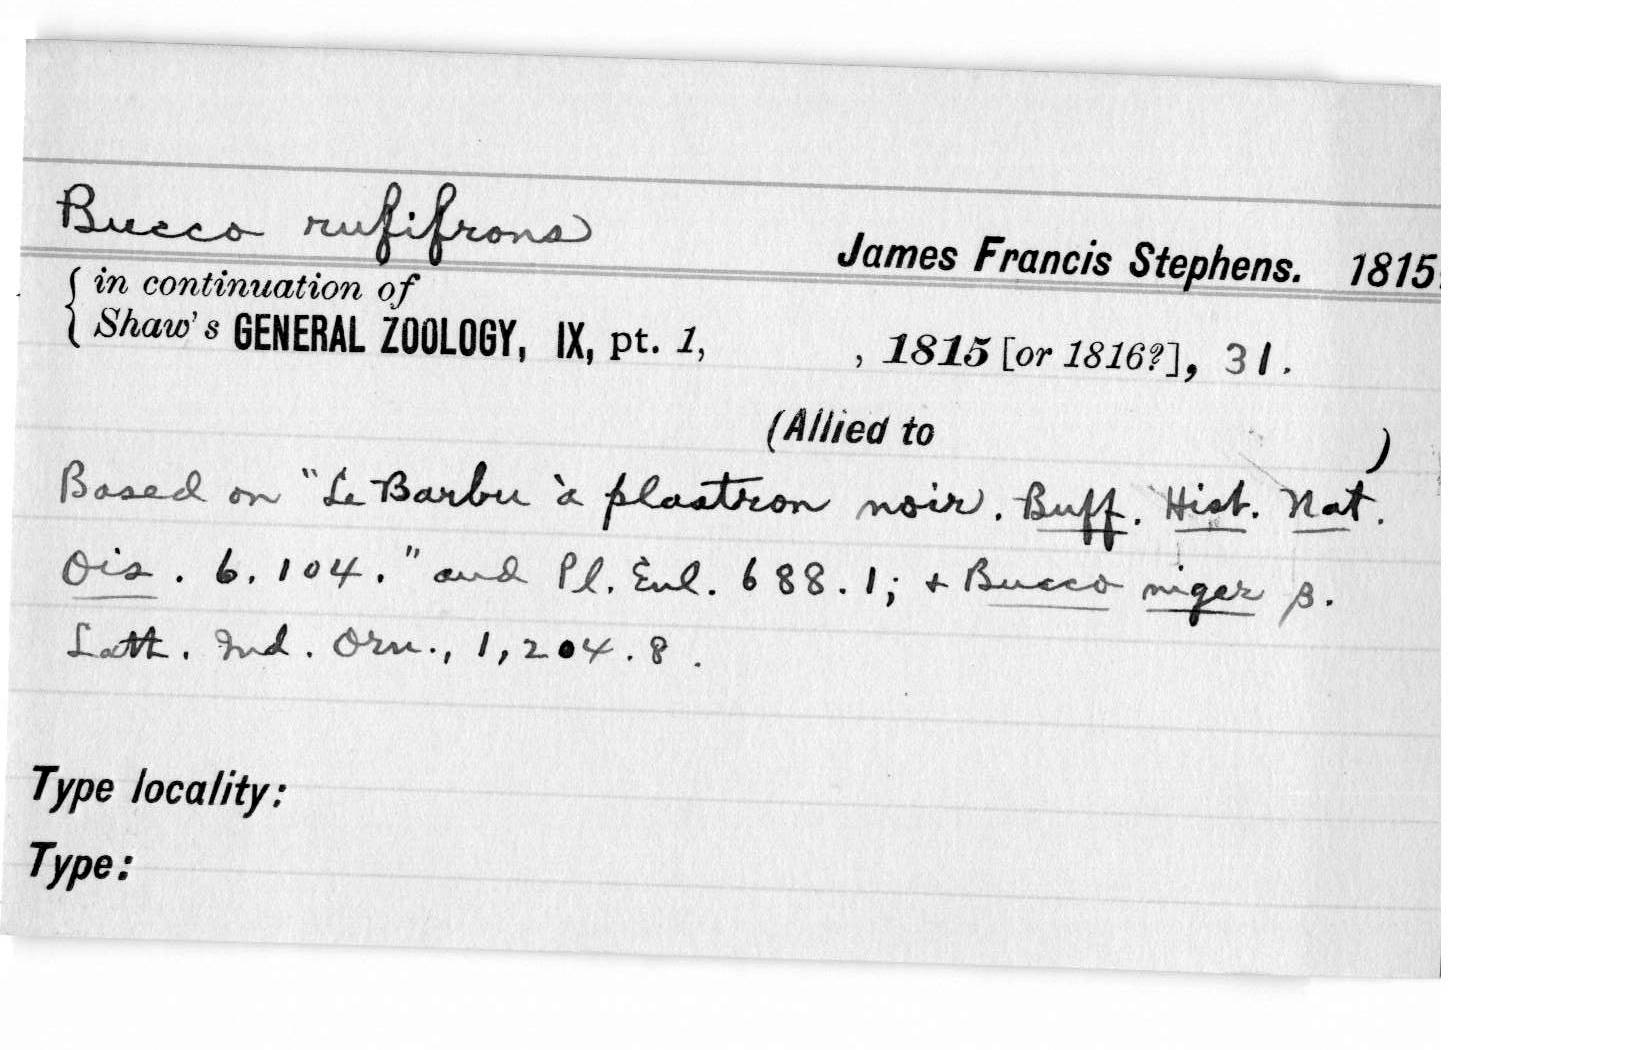 Bucco rufifrons James Francis Stephens. 1815.
{ in continuation of
{ Shaw's GENERAL ZOOLOGY, IX, pt. 1, , 1815 [or 1816?], 31.
(Allied to )
Based on "Le Barbu à plastron noir. Buff. Hist. Nat.
Ois. 6. 104." and Pl. Enl. 688.1; + Bucco niger β.
Lath. Ind. Orn., 1, 204. 8.
Type locality:
Type: